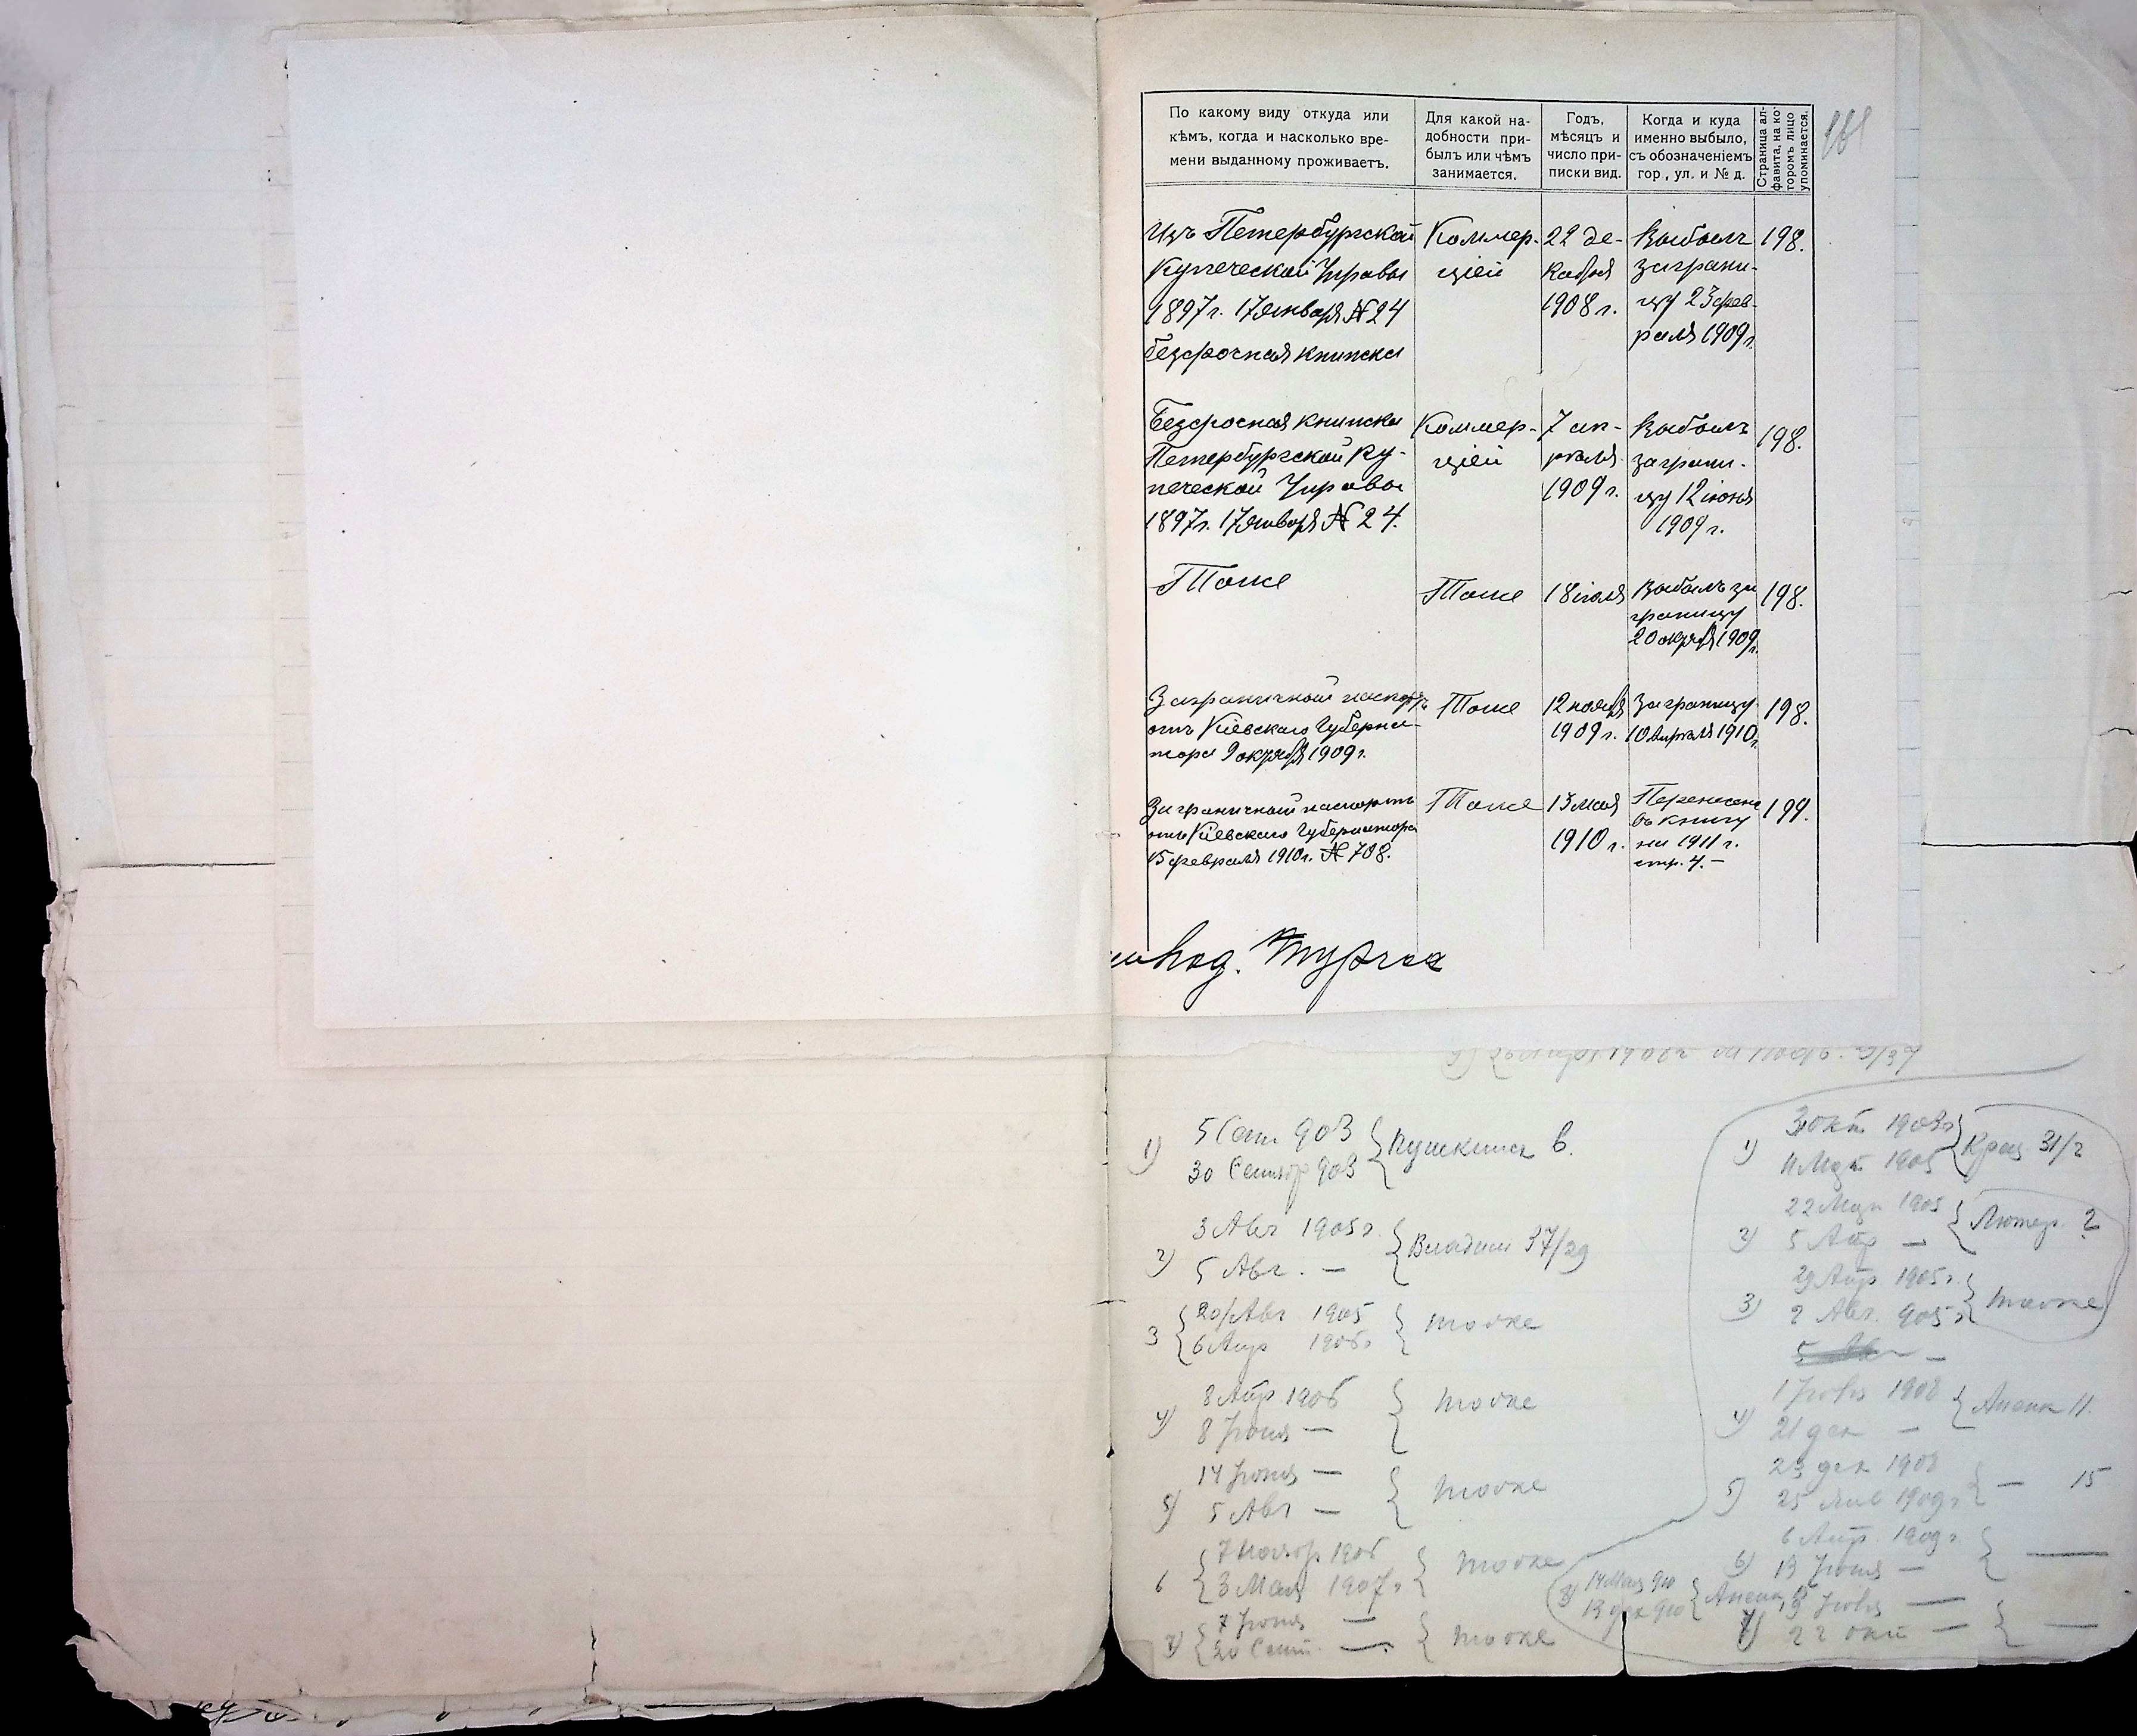 По какому виду откуда или
кѣмъ, когда и насколько вре-
мени выданному проживаетъ.
Для какой на-
добности при-
былъ или чѣмъ
занимается.
Годъ,
мѣсяцъ и
число при-
писки вид.
Когда и куда
именно выбыло,
съ обозначеніемъ
гор., ул. и № д.
Страница ал-
фавита, на ко-
торомъ лицо
упоминается.
Изъ Петербургской
Купеческой Управы
1897 г. 17 января № 24
безсрочная книжка
Коммер-
ціей
22 де-
кабря
1908 г.
Выбылъ
заграни-
цу 23 фев-
раля 1909 г.
198.
Безсрочная книжка
Петербургской Ку-
печеской Управы
1897 г. 17 января № 24.
Коммер-
ціей
7 ап-
рѣля
1909 г.
Выбылъ
заграни-
цу 12 іюня
1909 г.
198.
Тоже
Тоже
18 іюля
Выбылъ за
границу
20 октября 1909 г.
198.
Заграничный паспортъ
отъ Кіевскаго Губерна-
тора 9 октября 1909 г.
Тоже
12 ноября
1909 г.
Заграницу
10 Апрѣля 1910 г.
198.
Заграничный паспортъ
отъ Кіевскаго Губернатора
15 февраля 1910 г. № 708.
Тоже
13 мая
1910 г.
Перенесенъ
въ книгу
на 1911 г.
стр. 4. —
199.
1) 5 Сент 903
30 Сентяр 903
Пушкинск 6.
2) 3 Авг 1905 г.
5 Авг. —
Владим 37/29
3 20 Авг 1905
6 Апр 1906 г
тоже
4) 8 Апр 1906
8 Іюня —
тоже
5) 14 Іюня —
5 Авг —
тоже
6 7 Ноябр 1906
3 Мая 1907 г
тоже
7) 7 Іюня —
20 Сент. —
тоже
1) 3 окт 1903 г
11 Мрт 1905
Крещ 31/2
2) 22 Мрт 1905
5 Апр —
Лютер. 2
3) 29 Апр 1905 г.
2 Авг. 905 г
тоже
4) 1908
21 дек —
Аненк 11.
5) 23 дек 1908
25 1909 г
— 15
6) 6 Апр. 1909 г
13 Іюня —
7) 22 окт —
8) 14 Мая 910
13 дек 910
Аненк 15